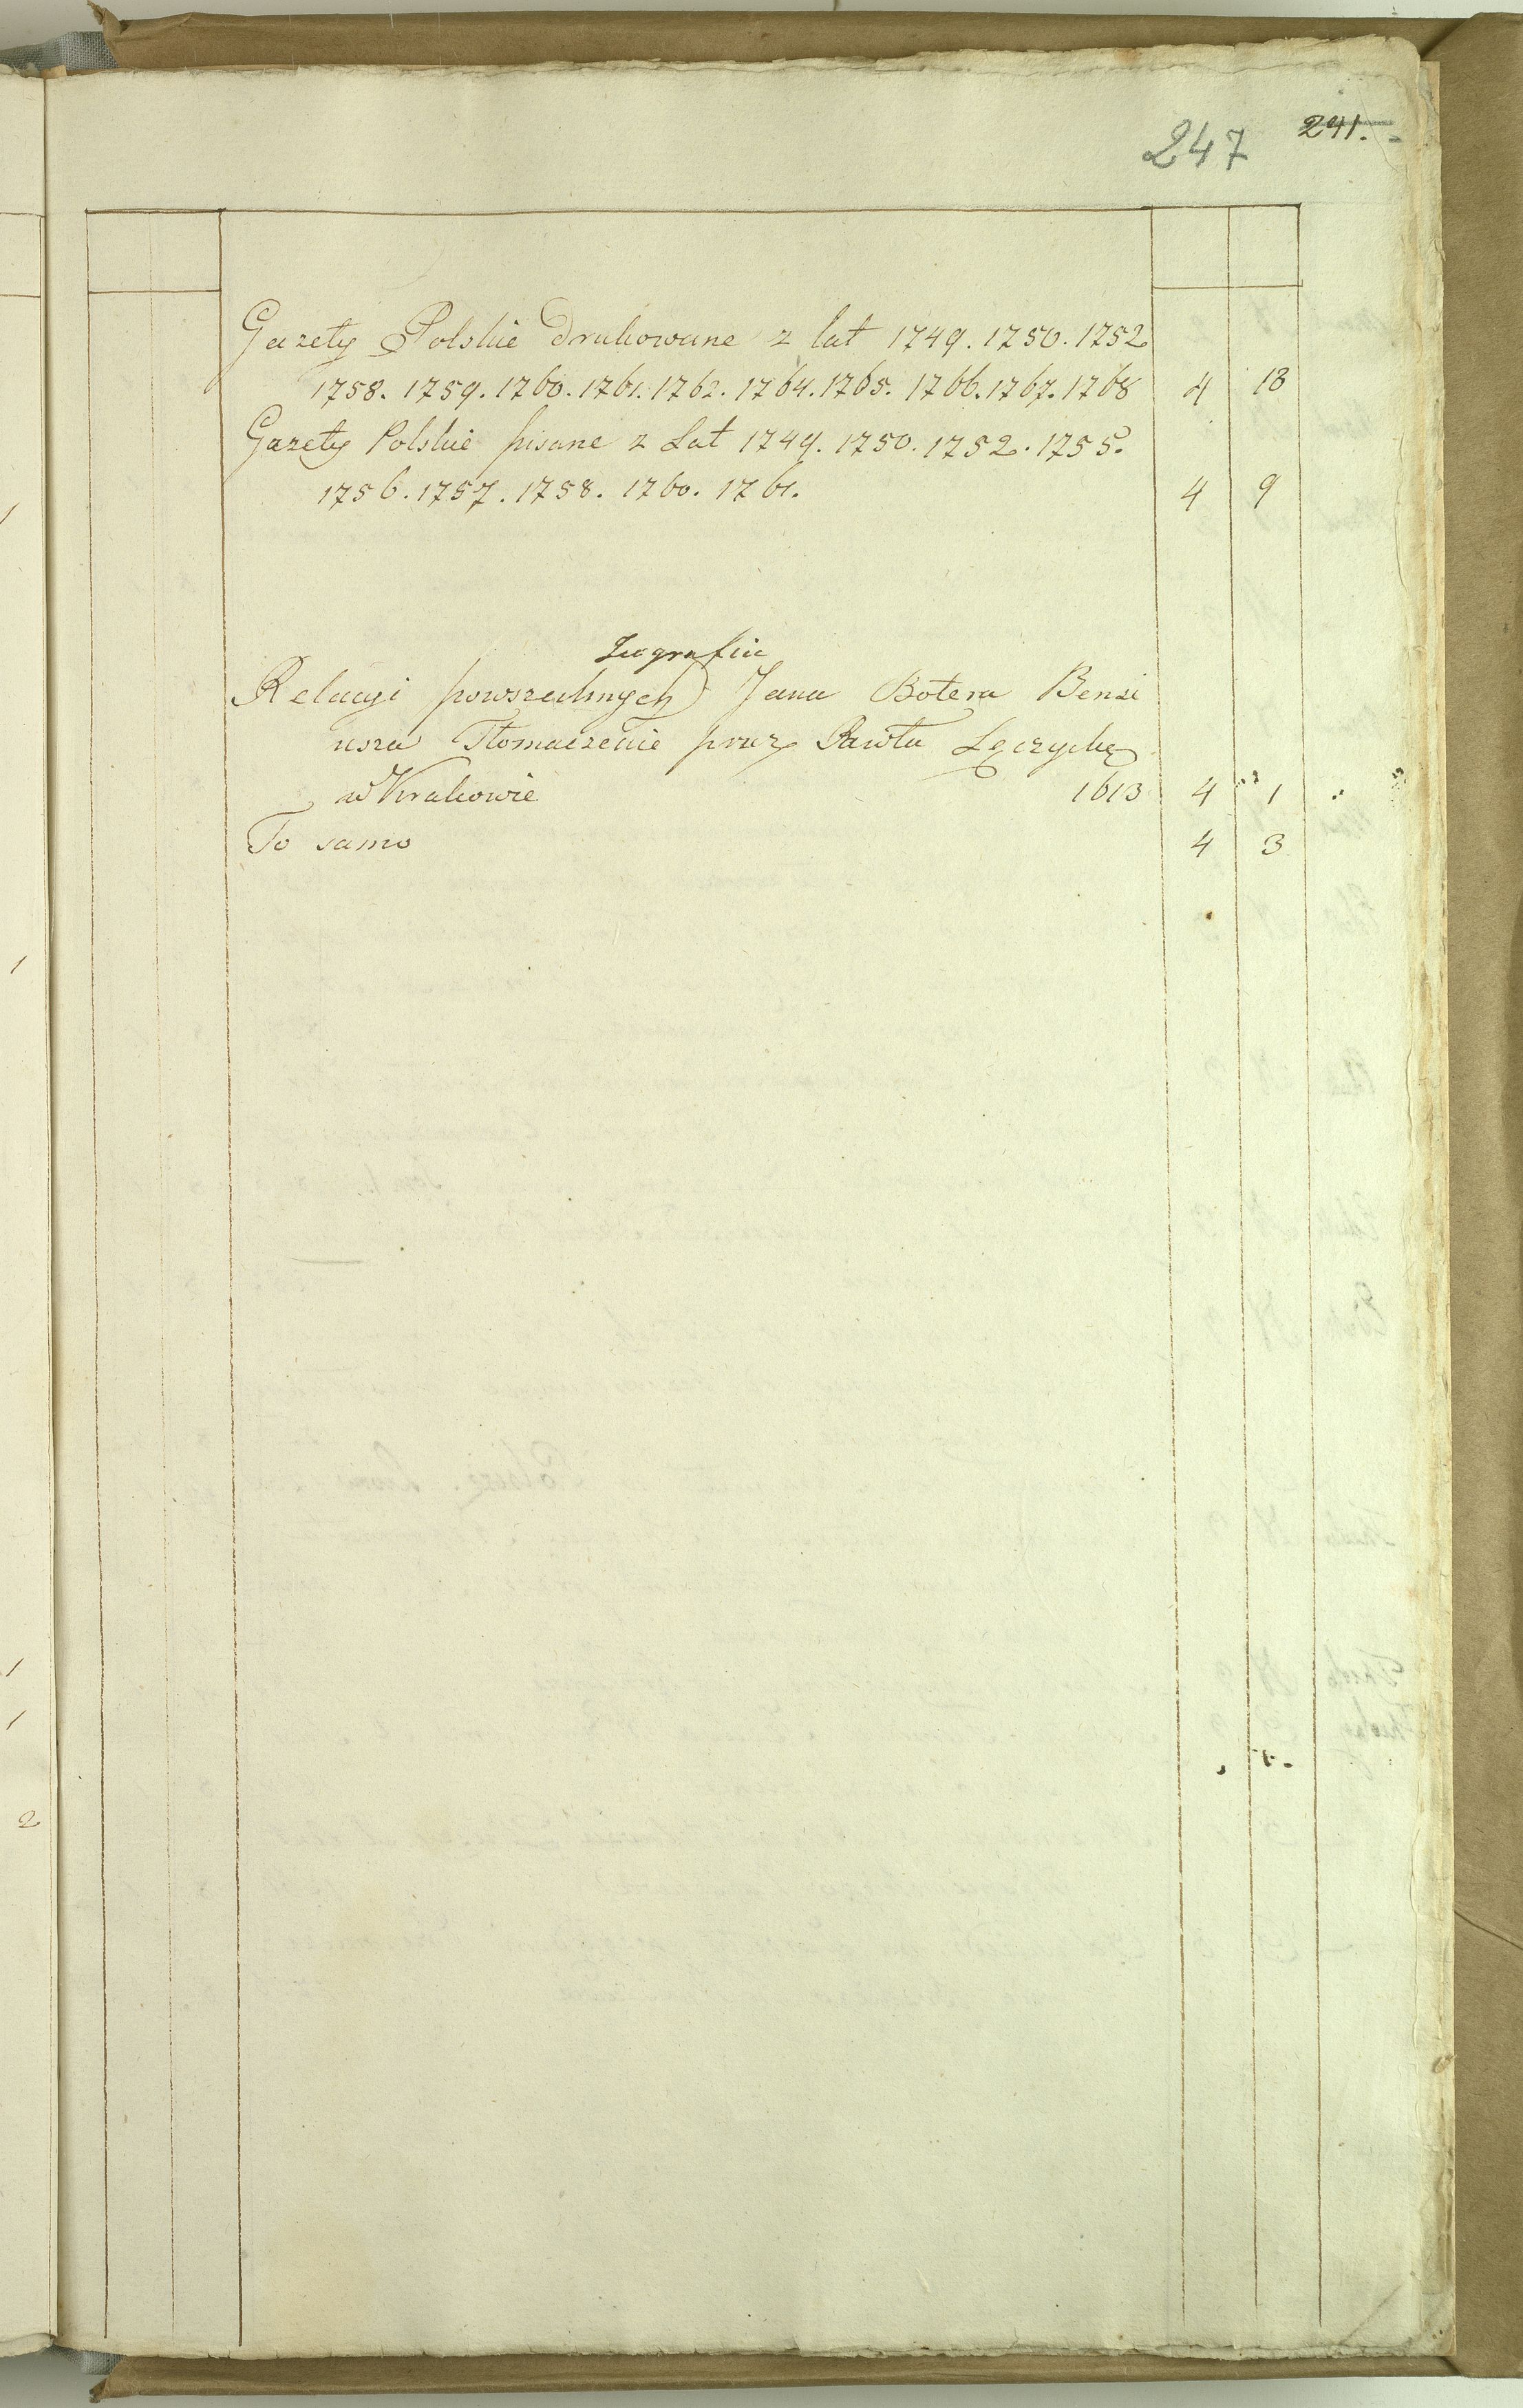 247 241.
Gazety Polskie drukowane z lat 1749. 1750. 1752
1758. 1759. 1760. 1761. 1762. 1764. 1765. 1766. 1767. 1768 4 13
Gazety Polskie pisane z Lat 1749. 1750. 1752. 1755.
1756. 1757. 1758. 1760. 1761. 4 9
Relacyi powszechnych Jana Botera Bensi
usza Tłomaczenie przez Pawła Łęczycką
w Krakowie 1613 4 1
To samo 4 3
1
1
1
1
2